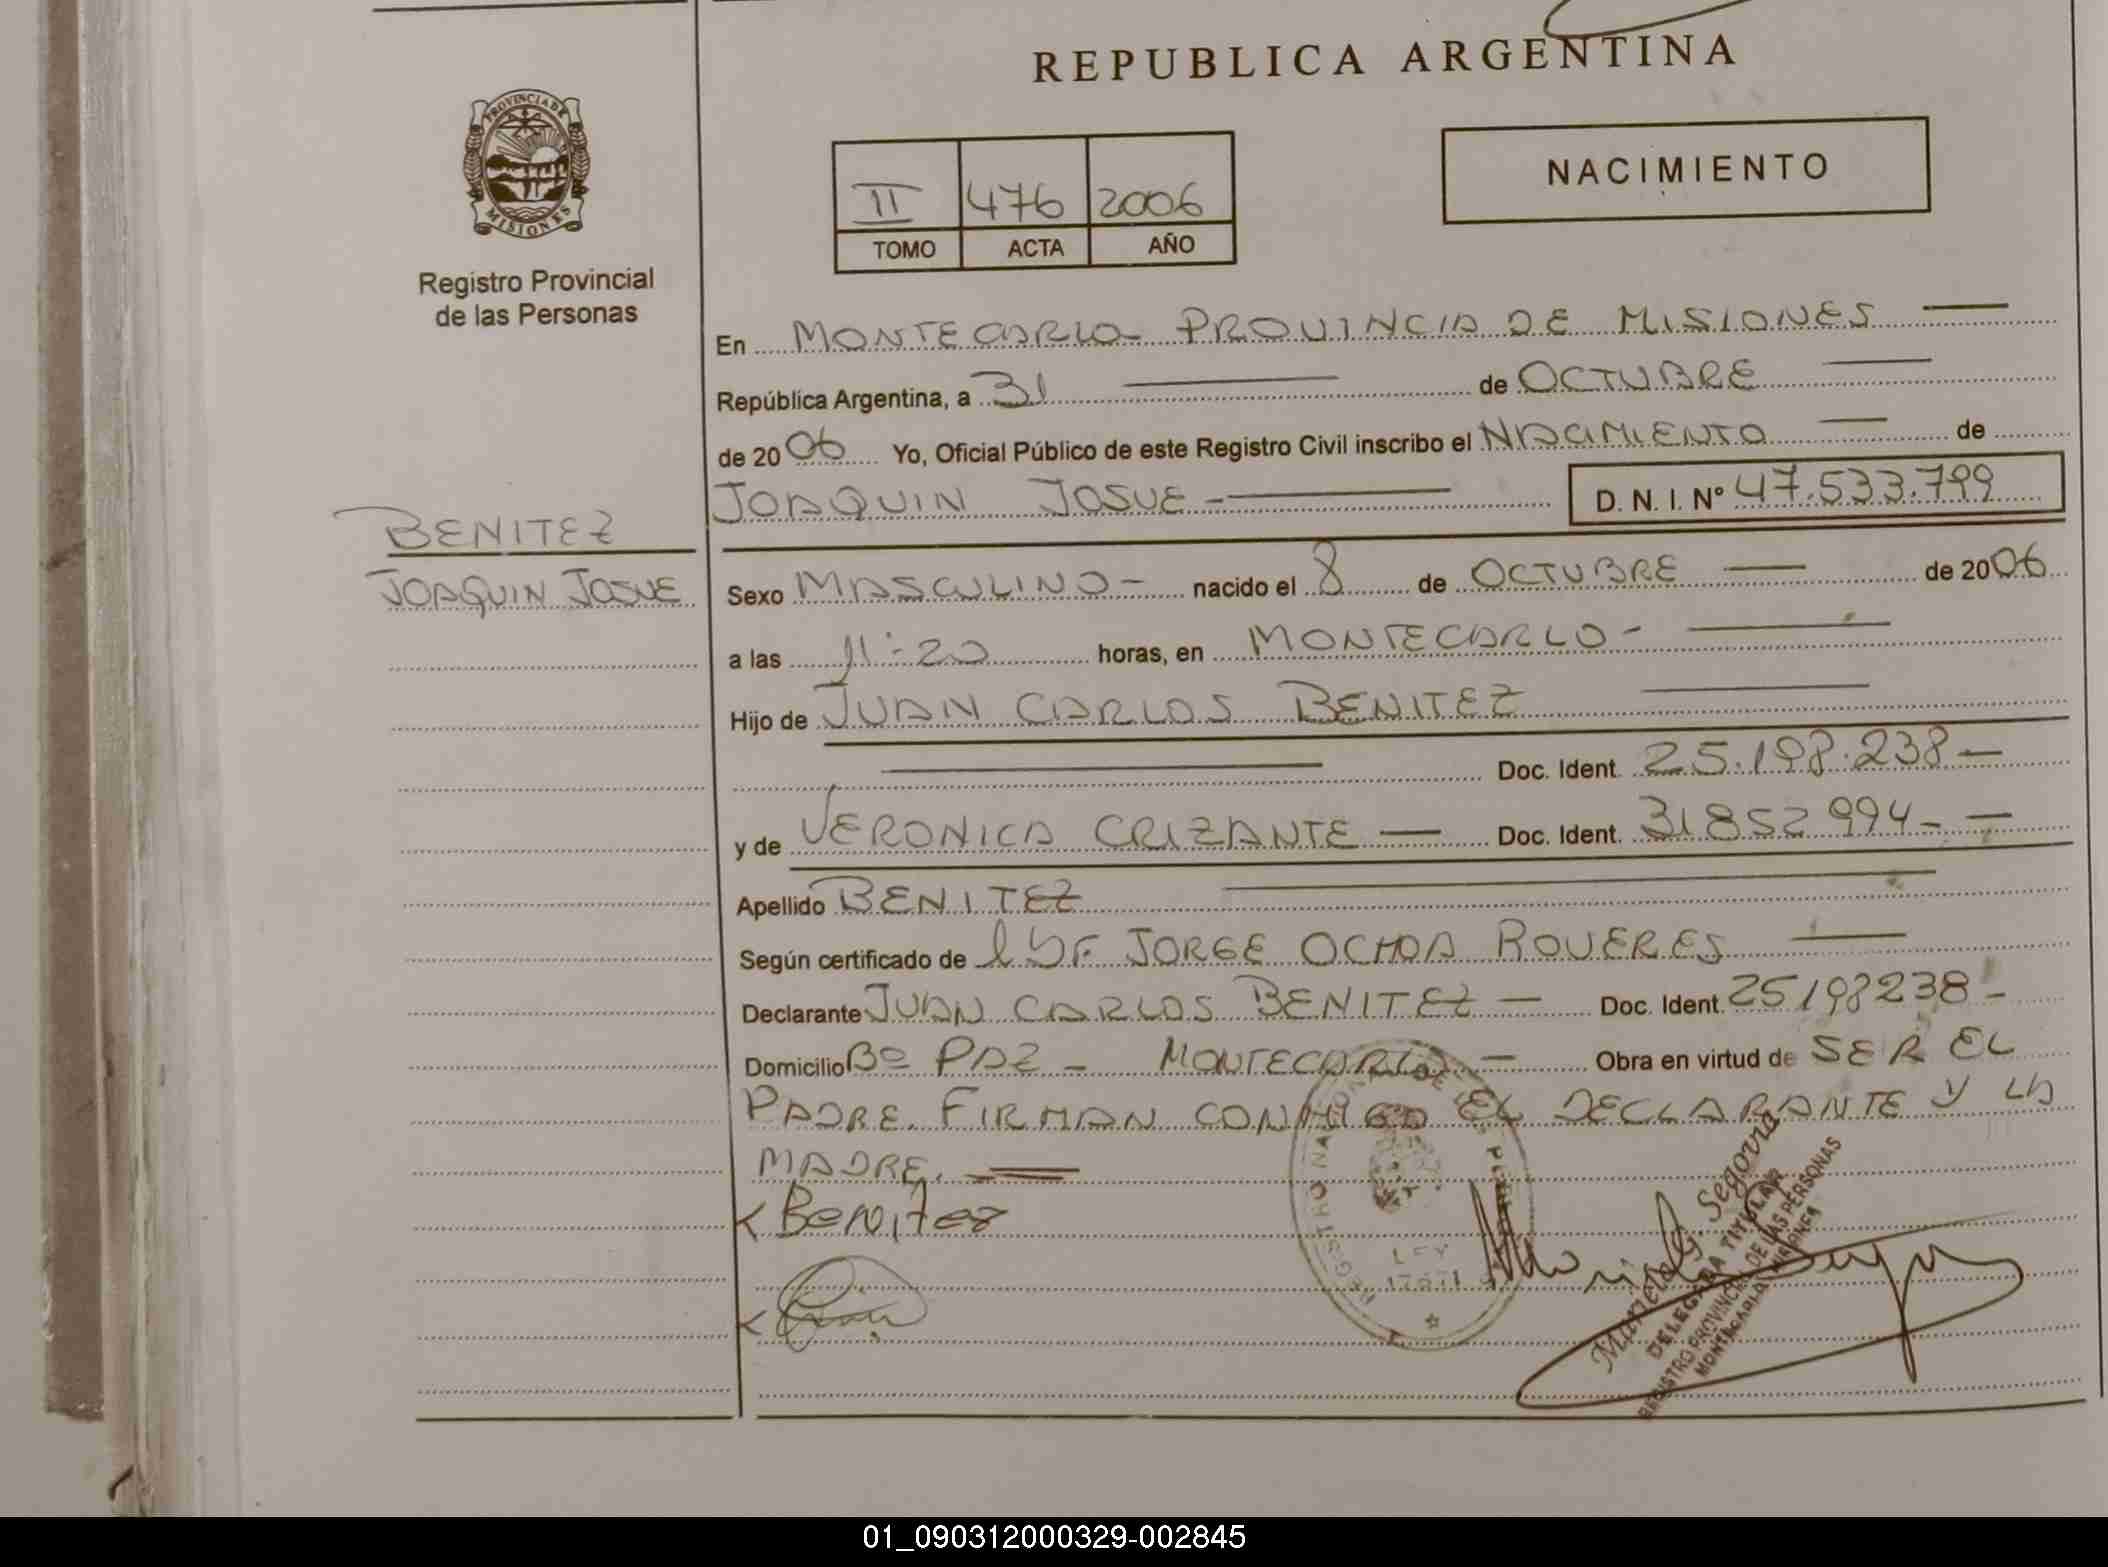 REPUBLICA ARGENTINA
PROVINCIA DE
MISIONES
Registro Provincial
de las Personas
II 476 2006
TOMO ACTA AÑO
NACIMIENTO
En MONTECARLO - PROVINCIA DE MISIONES
República Argentina, a 31 de OCTUBRE
de 2006 Yo, Oficial Público de este Registro Civil inscribo el NACIMIENTO de
JOAQUIN JOSUE - D. N. I. Nº 47.533.799
BENITEZ
JOAQUIN JOSUE
Sexo MASCULINO - nacido el 8 de OCTUBRE de 2006
a las 11:20 horas, en MONTECARLO -
Hijo de JUAN CARLOS BENITEZ
Doc. Ident. 25.198.238 -
y de VERONICA CRIZANTE - Doc. Ident. 31852994 -
Apellido BENITEZ
Según certificado de JORGE OCHOA ROVERES
Declarante JUAN CARLOS BENITEZ - Doc. Ident. 25198238 -
Domicilio Bº PAZ - MONTECARLO - Obra en virtud de SER EL
PADRE. FIRMAN CONMIGO EL DECLARANTE Y LA
MADRE.
Benitez
REGISTRO NACIONAL DE LAS PERSONAS
LEY
17671
Mariela Segovia
DELEGADA TITULAR
REGISTRO PROVINCIAL DE LAS PERSONAS
MONTECARLO MISIONES
01_090312000329-002845